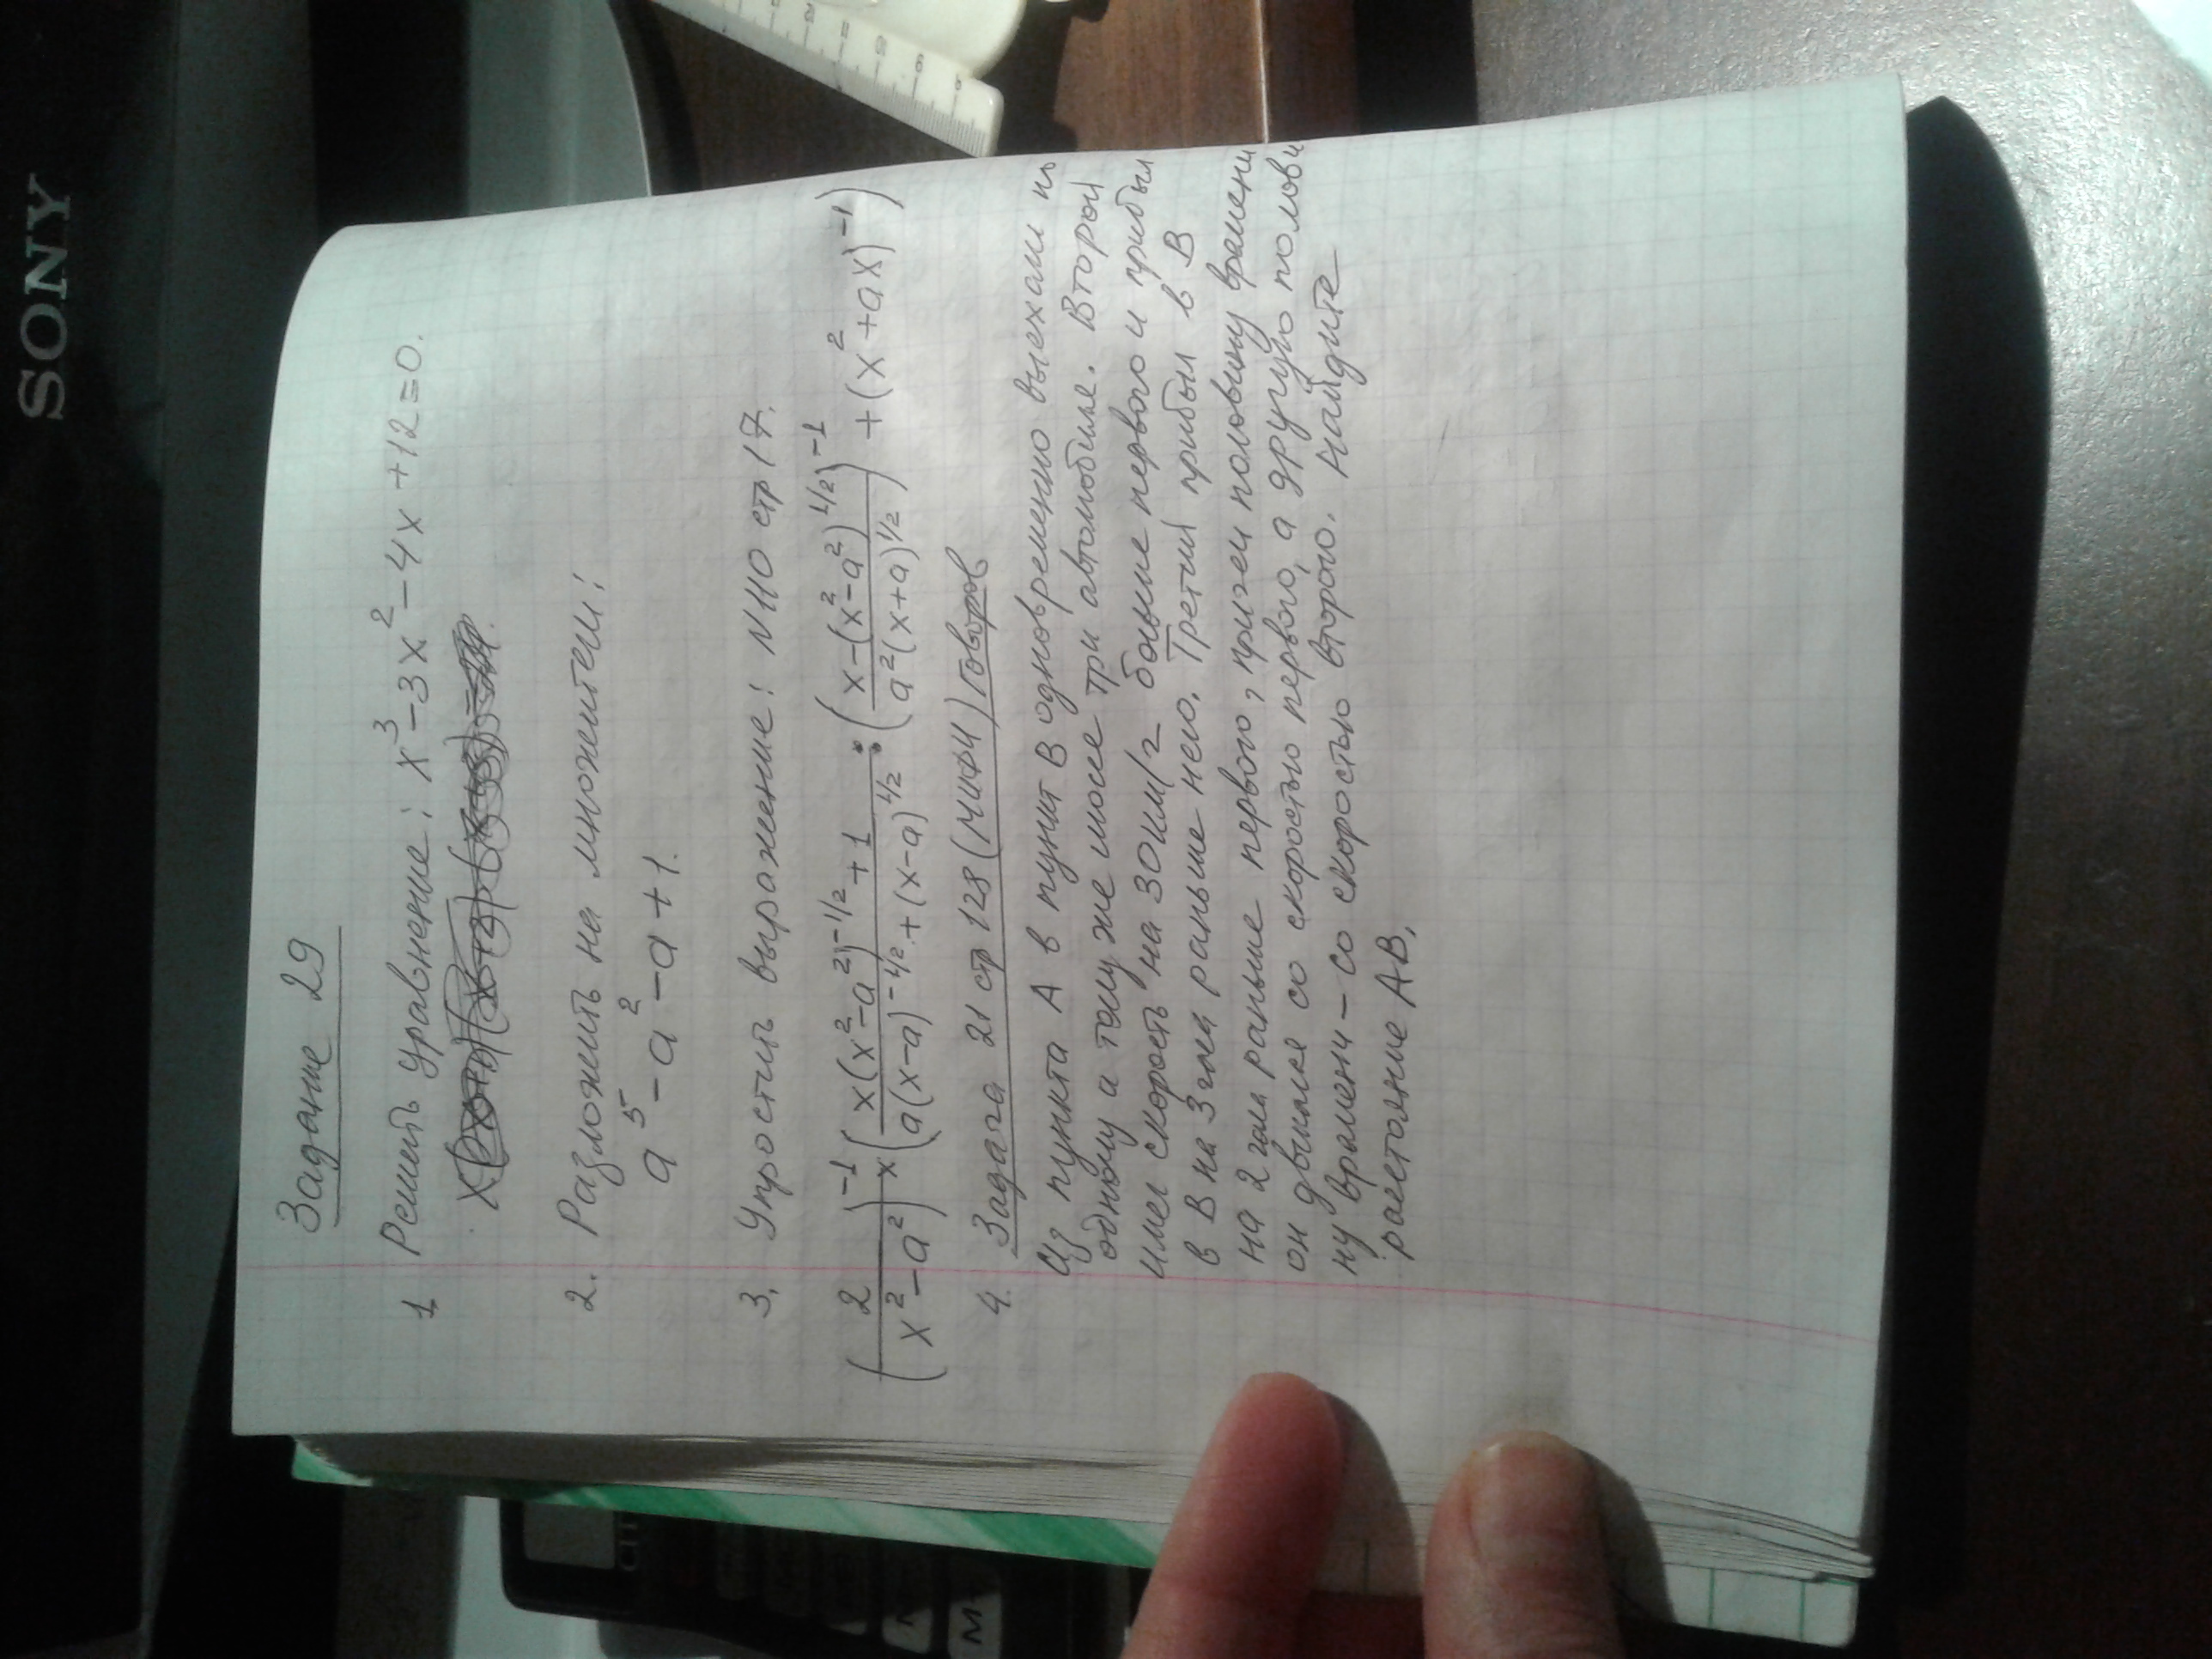 SONY
Задание 29
1. Решить уравнение: x³ - 3x² - 4x + 12 = 0.
2. Разложить на множители:
a⁵ - a² - a + 1.
3. Упростить выражение: N110 стр 17.
(2/(x² - a²))⁻¹ × ((x(x² - a²)^(-1/2) + 1)/(a(x - a)^(-1/2) + (x - a)^(1/2)) : ((x - (x² - a²)^(1/2))/(a²(x + a)^(1/2)))⁻¹ + (x² + ax)⁻¹)
4. Задача 21 стр 128 (МИФИ) Говоров
Из пункта А в пункт В одновременно выехали по
одному и тому же шоссе три автомобиля. Второй
имел скорость на 30 км/г больше первого и прибыл
в В на 3 часа раньше него. Третий прибыл в В
на 2 часа раньше первого, причем половину времени
он двигался со скоростью первого, а другую полови
ну времени – со скоростью второго. Найдите
расстояние АВ.